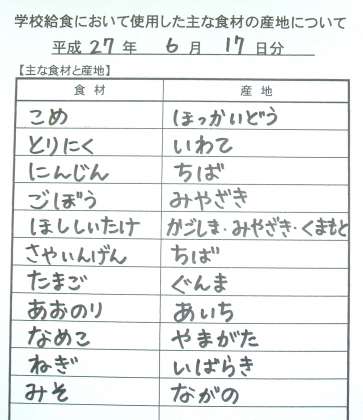 学校給食において使用した主な食材の産地について
平成 27 年 6 月 17 日分
【主な食材と産地】
食材 産地
こめ ほっかいどう
とりにく いわて
にんじん ちば
ごぼう みやざき
ほししいたけ かごしま・みやざき・くまもと
さやいんげん ちば
たまご ぐんま
あおのり あいち
なめこ やまがた
ねぎ いばらき
みそ ながの